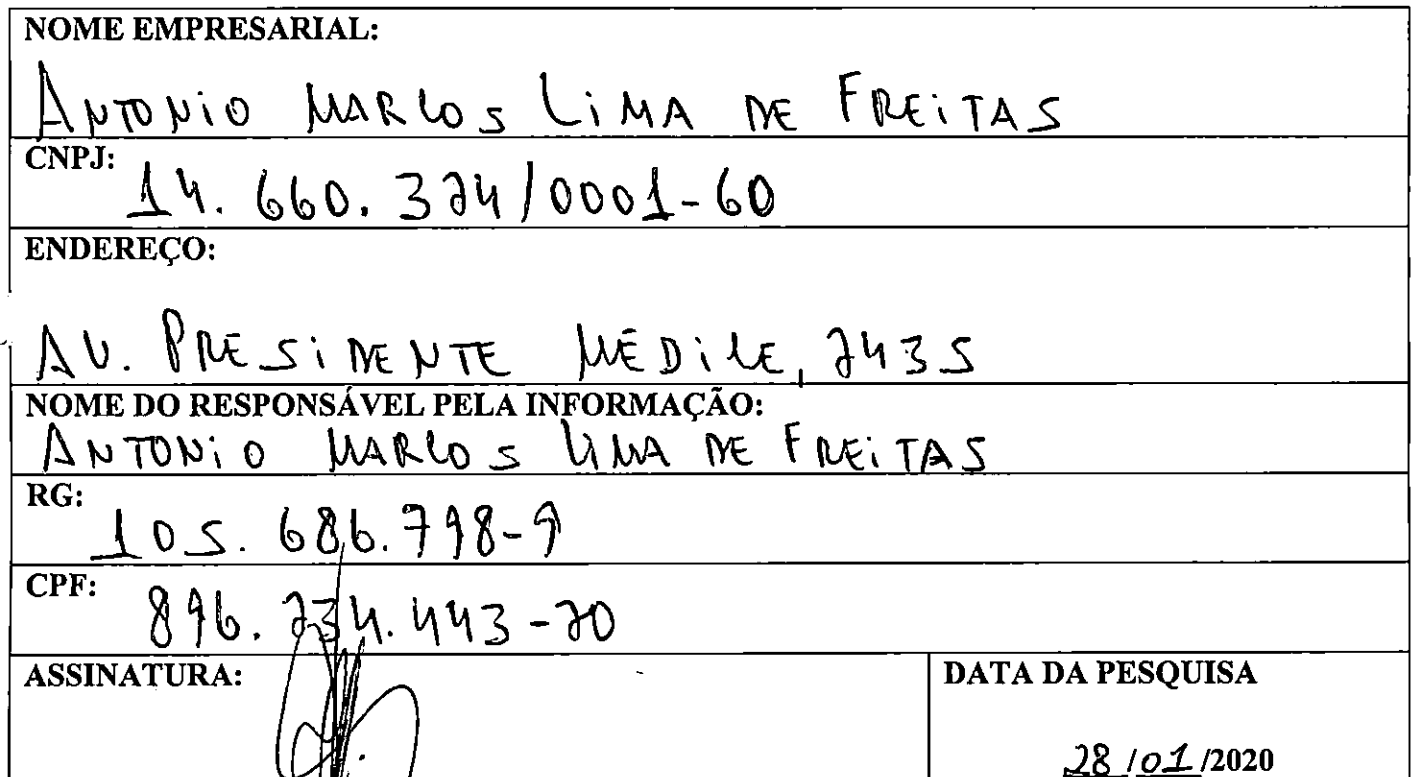 NOME EMPRESARIAL:
ANTONIO MARCOS LIMA DE FREITAS
CNPJ: 14.660.324/0001-60
ENDEREÇO:
AV. PRESIDENTE MÉDICE, 2435
NOME DO RESPONSÁVEL PELA INFORMAÇÃO:
ANTONIO MARCOS LIMA DE FREITAS
RG: 105.686.798-9
CPF: 896.234.443-20
ASSINATURA:
DATA DA PESQUISA
28/01/2020